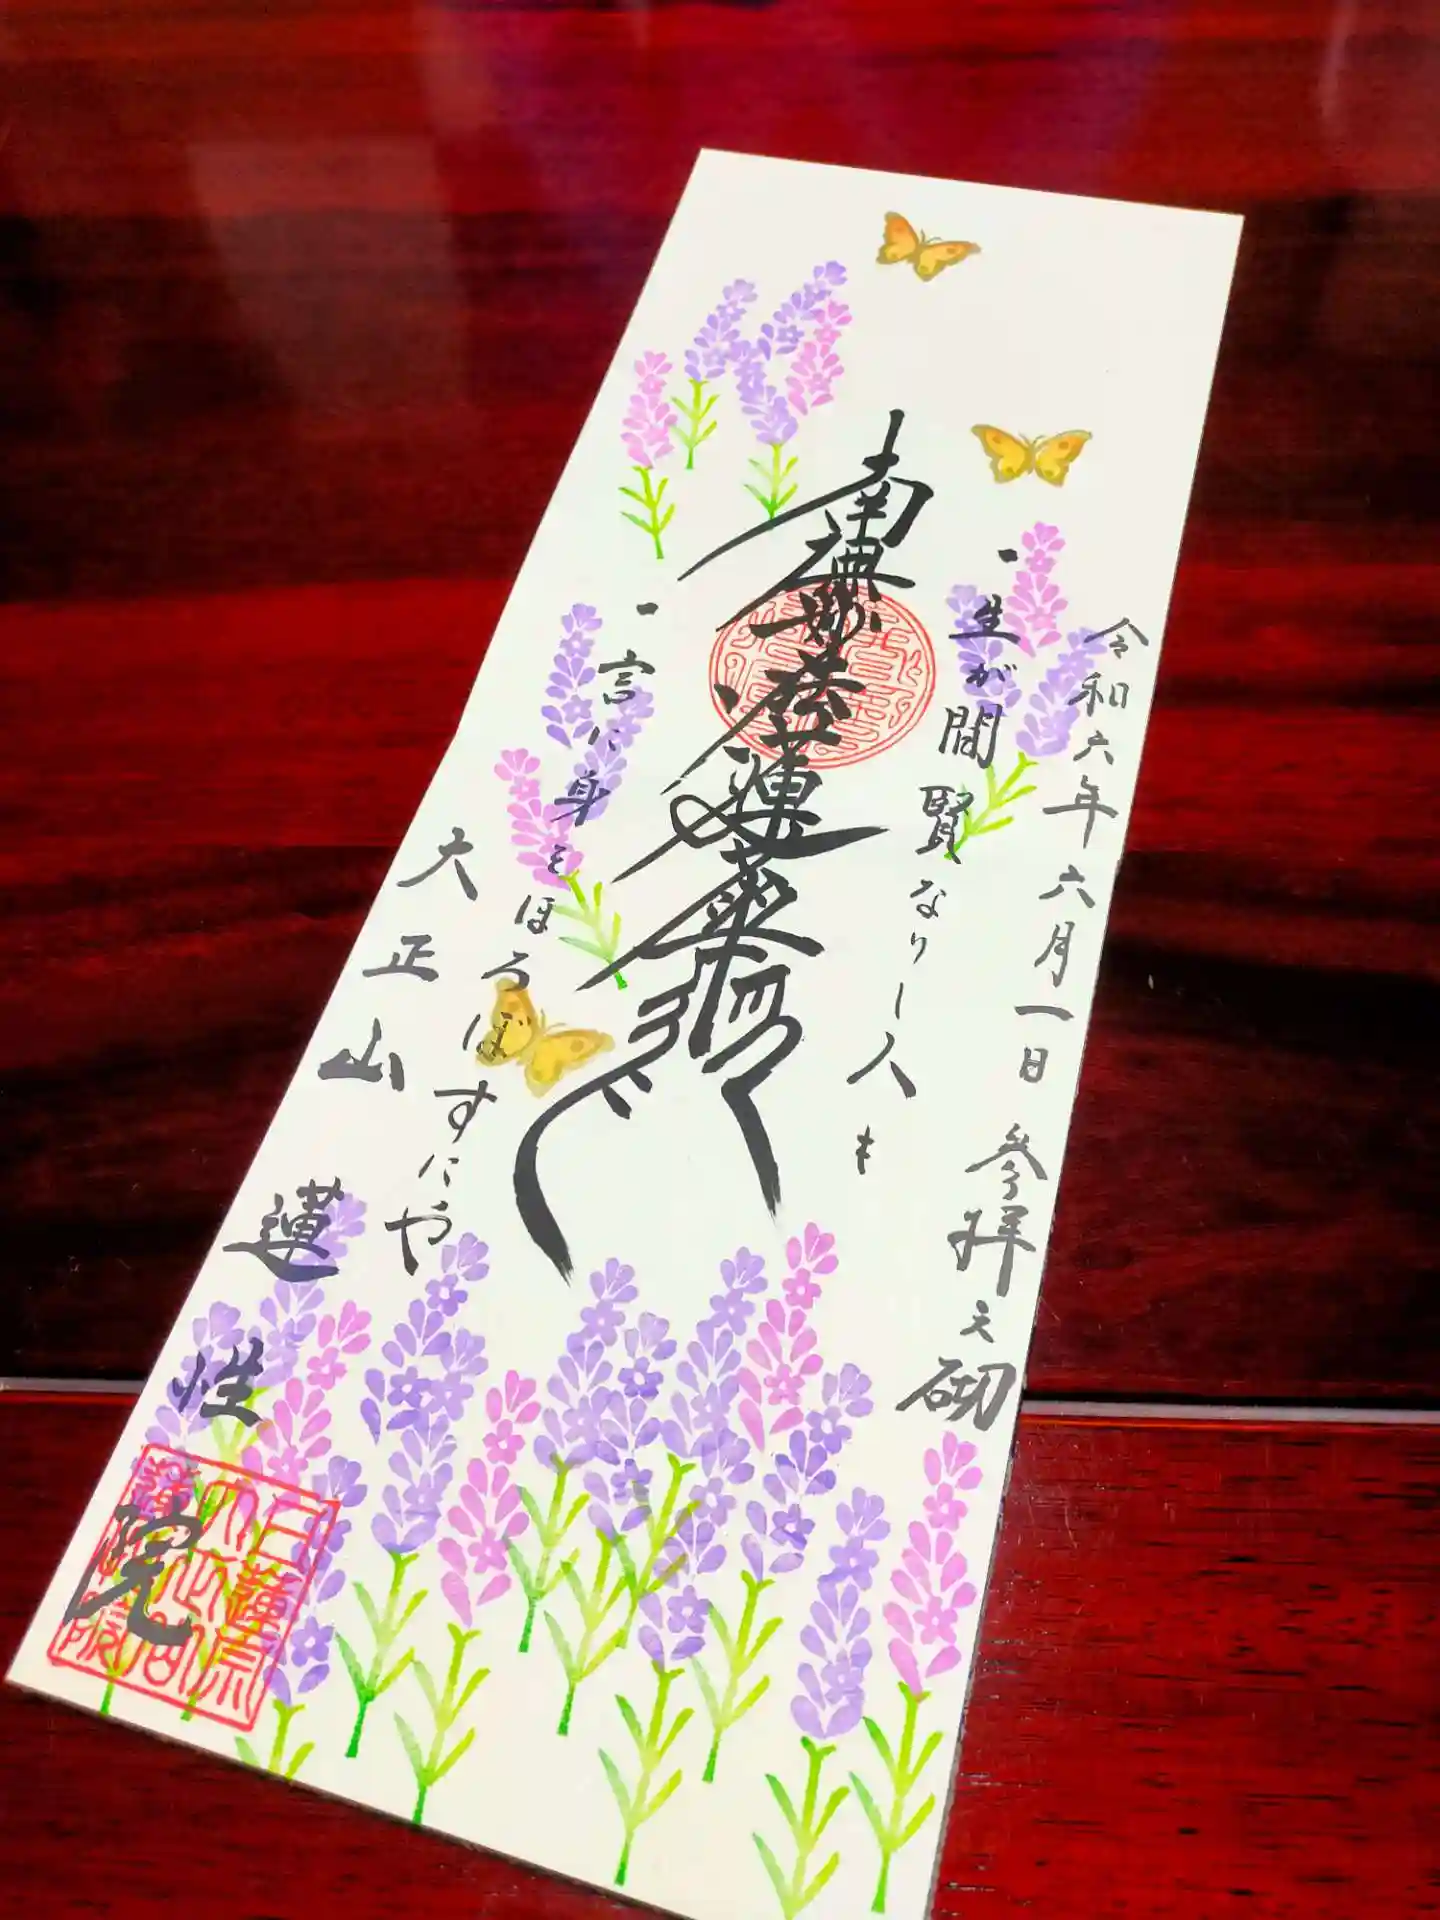 令和六年六月一日 参拝之砌
一生が間賢なりし人も
南無妙法蓮華経
一言に身をほろぼすにや
大正山 蓮性院